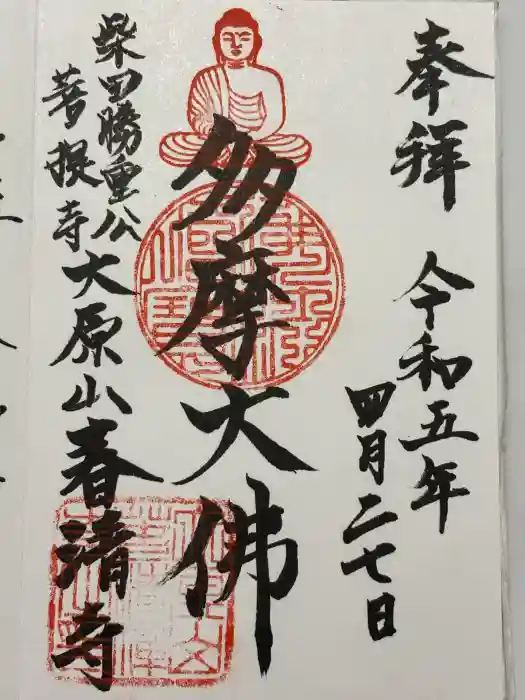 奉拝 令和五年
四月二七日
多摩大佛
柴田勝重公
菩提寺大原山春清寺